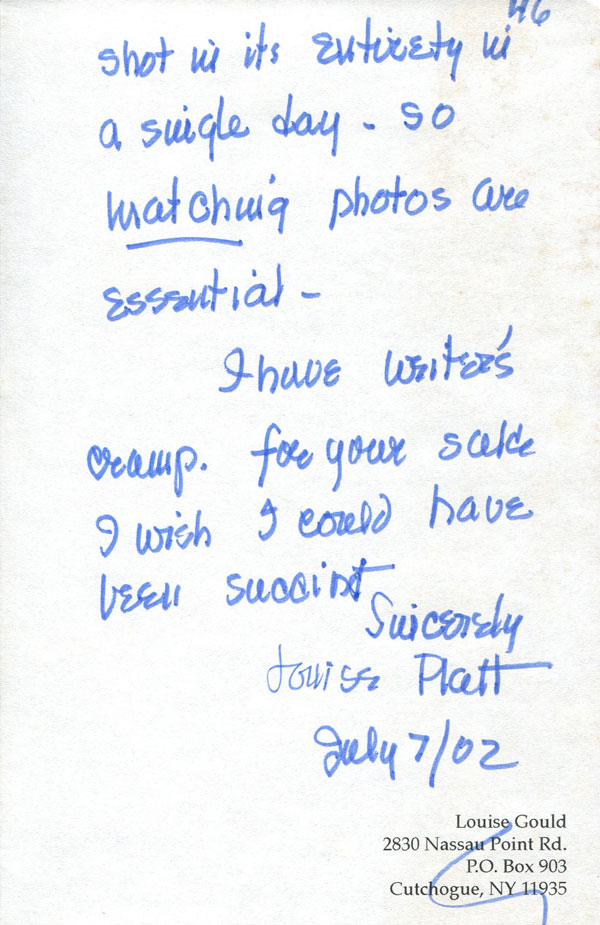 46
shot in its entirety in
a single day - so
matching photos are
esssential -
I have writer's
cramp. for your sake
I wish I could have
been succint
Sincerely
Louise Platt
July 7/02
Louise Gould
2830 Nassau Point Rd.
P.O. Box 903
Cutchogue, NY 11935